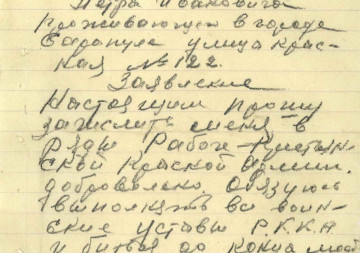 Петра Ивановича
проживающего в городе
Сарапуле улица Крас-
ная № 122.
Заявление
Настоящим прошу
зачислить меня в
ряды Рабоче-Крестьян-
ской Красной Армии.
добровольно, Обязуюсь
выполнять все воин-
ские уставы Р.К.К.А
и биться до конца